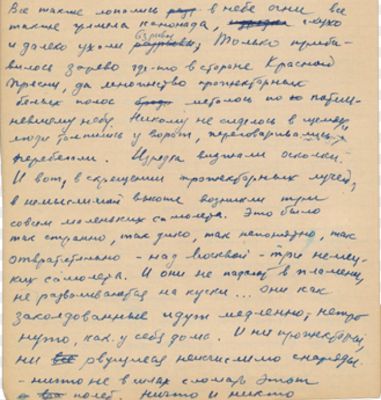 Все так же лопались в небе огни все
так же гремела канонада, глухо
и далеко ухали взрывы, Только приба-
вилось зарево где-то в стороне Красной
Пресни, да множество прожекторных
белых полос металось по
небу. Никому не сиделось в
люди толпились у ворот, переговаривались,
Изредка визжали осколки.
И вот, в скрещении прожекторных лучей,
в немыслимой высоте возникли три
совсем маленьких самолета. Это было
так странно, так дико, так непонятно, так
отвратительно - над Москвой - три немец-
ких самолета. И они не падают в пламени,
не разваливаются на куски... они как
заколдованные идут медленно, нетро
нуто, как у себя дома. И ни прожектора,
ни рвущиеся неисчислимо снаряды
- ничто не в силах сломать этот
полет. ничто и никто